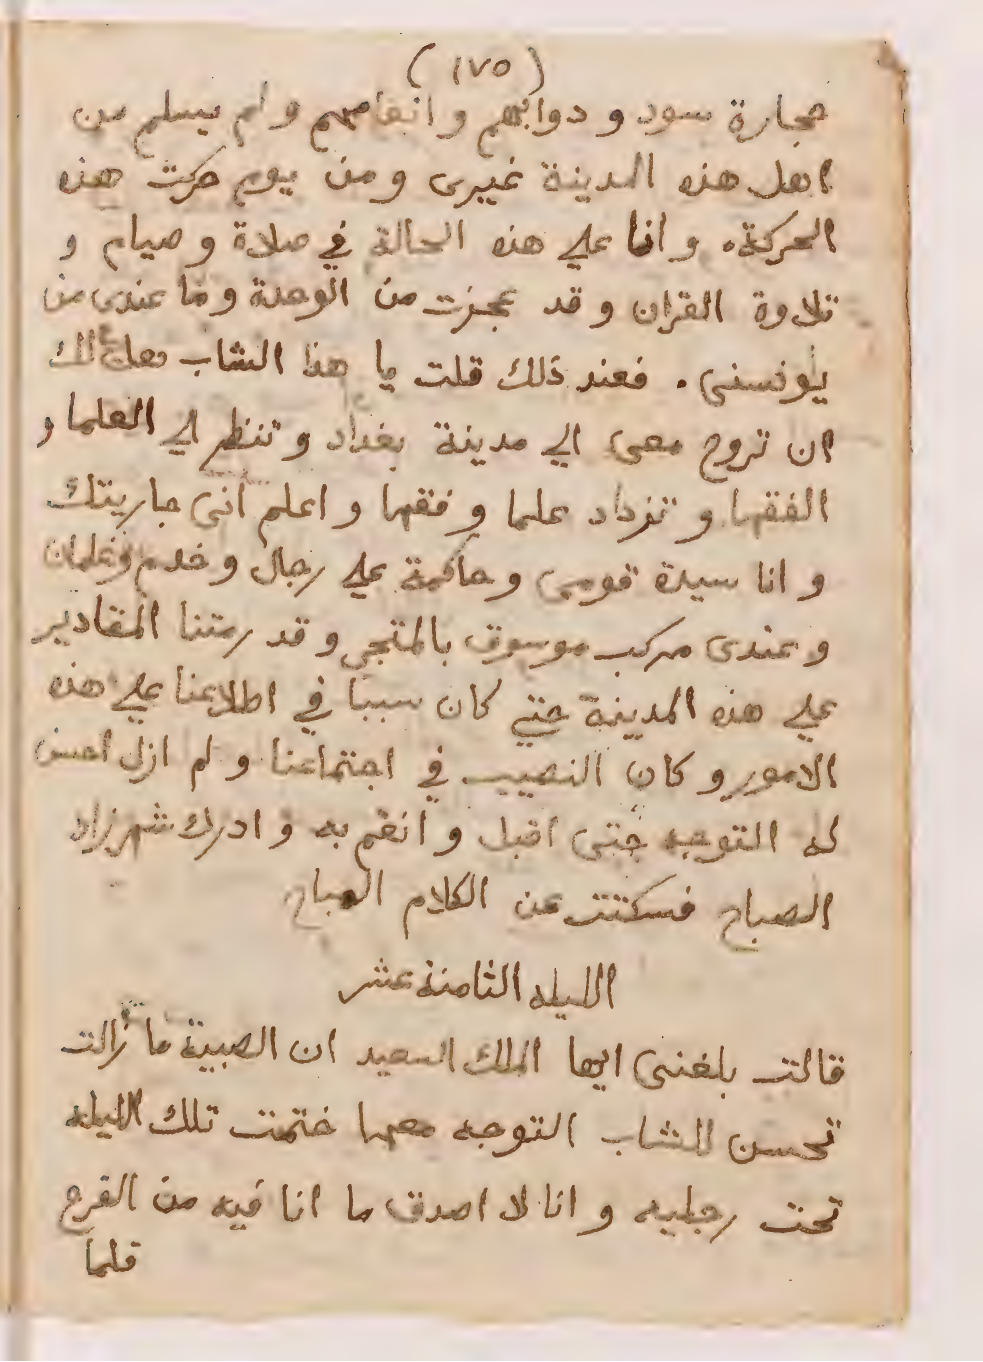 (١٧٥)
حجارة سود و دوابهم و انعامهم و لم يسلم من
اهل هذه المدينة غيرى و من يوم حركت هذه
الحركة. و انا علي هذه الحالة في صلاة و صيام و
تلاوة القران و قد عجزت من الوحدة و ما عندى من
يونسنى . فعند ذلك قلت يا هذا الشاب لك
ان تروح معى الي مدينة بغداد و تنظر الي العلما و
الفقها و تزداد علما و فقها و اعلم انى جاريتك
و انا سيدة قومى و حاكمة علي رجال و خدم و غلمان
و عندى مركب موسوق بالمتجر و قد رمتنا المقادير
علي هذه المدينة حتي كان سببا في اطلاعنا علي هذه
الامور و كان النصيب في اجتماعنا و لم ازل احسن
له التوجه حتى اقبل و انعم به و ادرك شهرزاد
الصباح فسكتت عن الكلام المباح
الليله الثامنة عشر
قالت بلغنى ايها الملك السعيد ان الصبية ما زالت
تحسن للشاب التوجه معها ختمت تلك الليله
تحت رجليه و انا لا اصدق ما انا فيه من الفرح
فلما